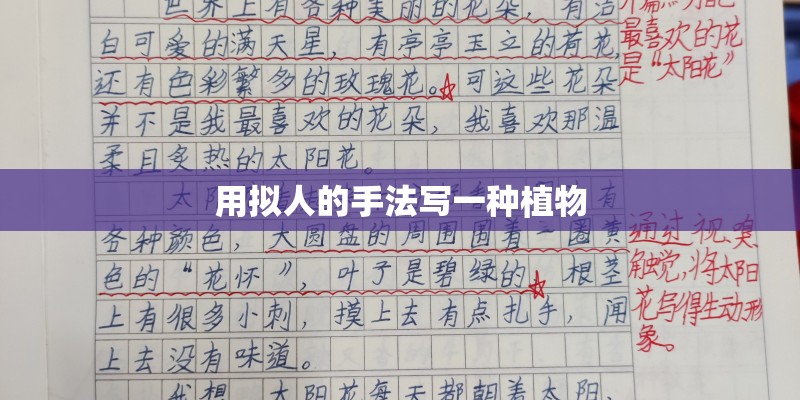 世界上有各种美丽的花朵，有洁
白可爱的满天星，有亭亭玉立的荷花，
还有色彩繁多的玫瑰花。可这些花朵
并不是我最喜欢的花朵，我喜欢那温
柔且炙热的太阳花。
用拟人的手法写一种植物
太阳
有
各种颜色，大圆盘的周围围着一圈黄
色的“花怀”，叶子是碧绿的 根茎
上有很多小刺，摸上去有点扎手，闻
上去没有味道。
我想 太阳花每天都朝着太阳、
最喜欢的花
是“太阳花”
通过视、嗅
触觉，将太阳
花写得生动形
象。